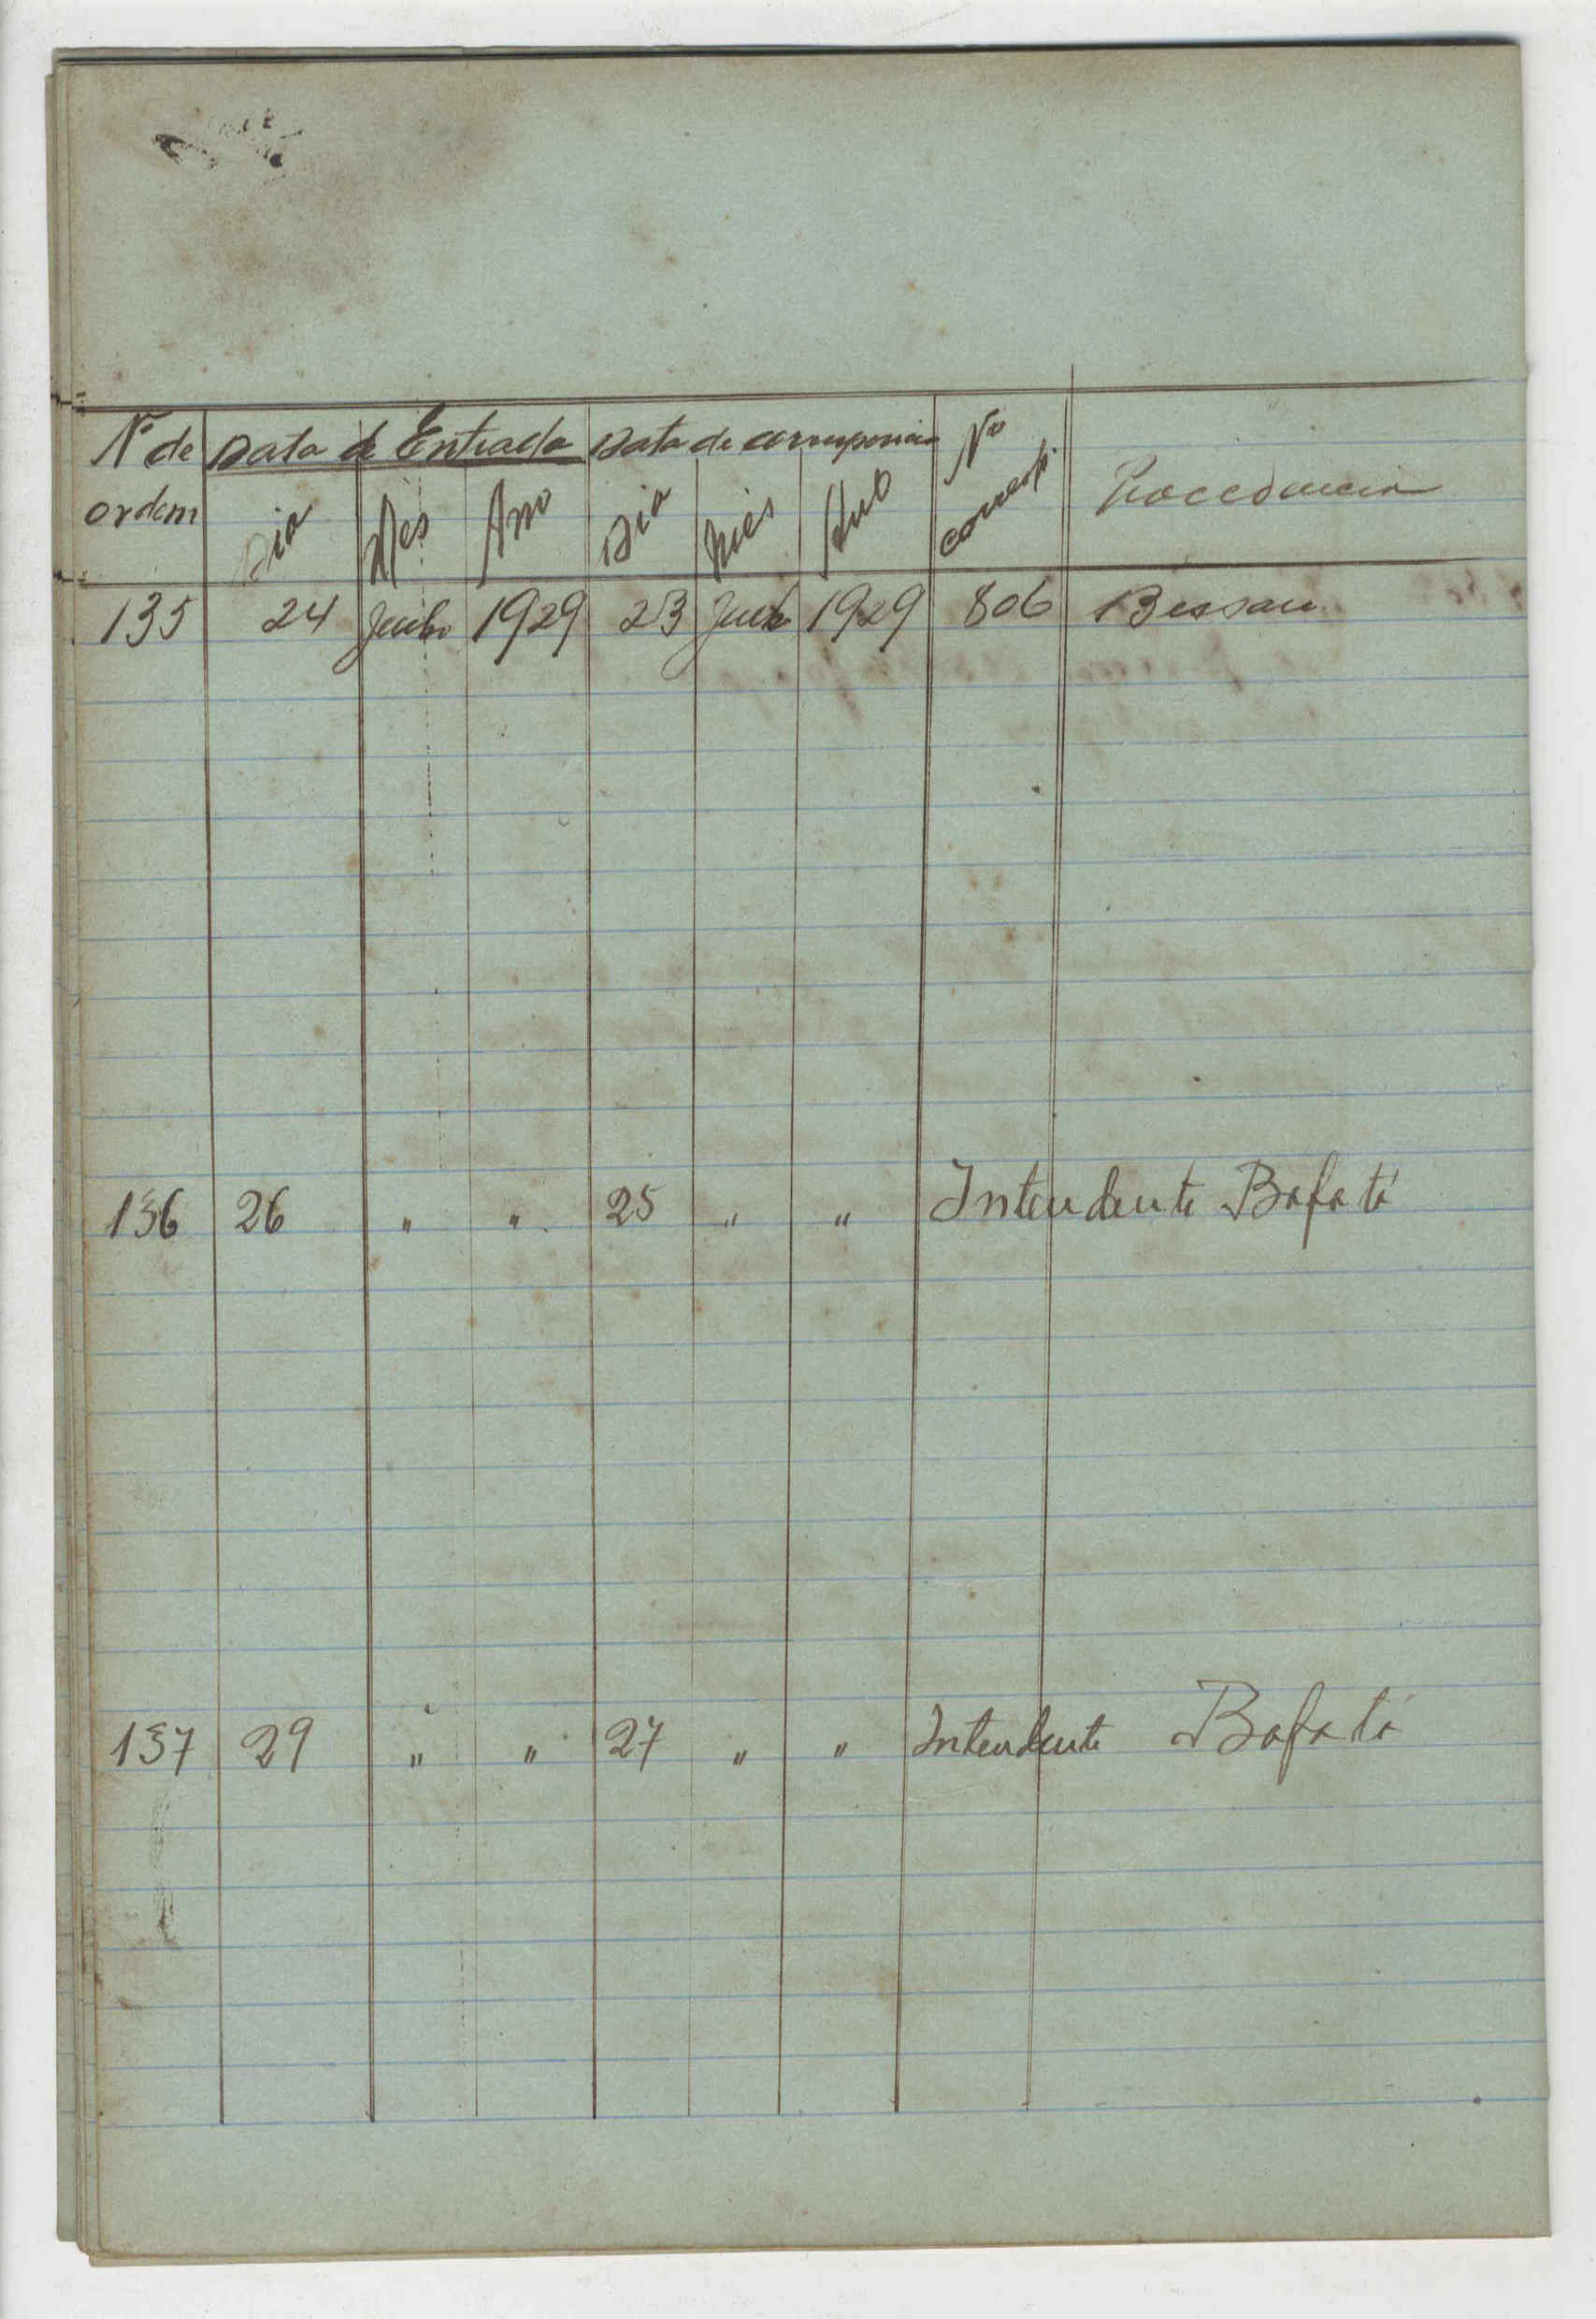 Nº de Data de Entrada Data de corresponcia Nº
ordem Dia Mês Ano Dia Mês Ano corresp. Procedencia
135 24 1929 23 1929 806 Bissau
136 26 " " 25 " " Intendente Bafatá
137 29 " " 27 " " Intendente Bafatá